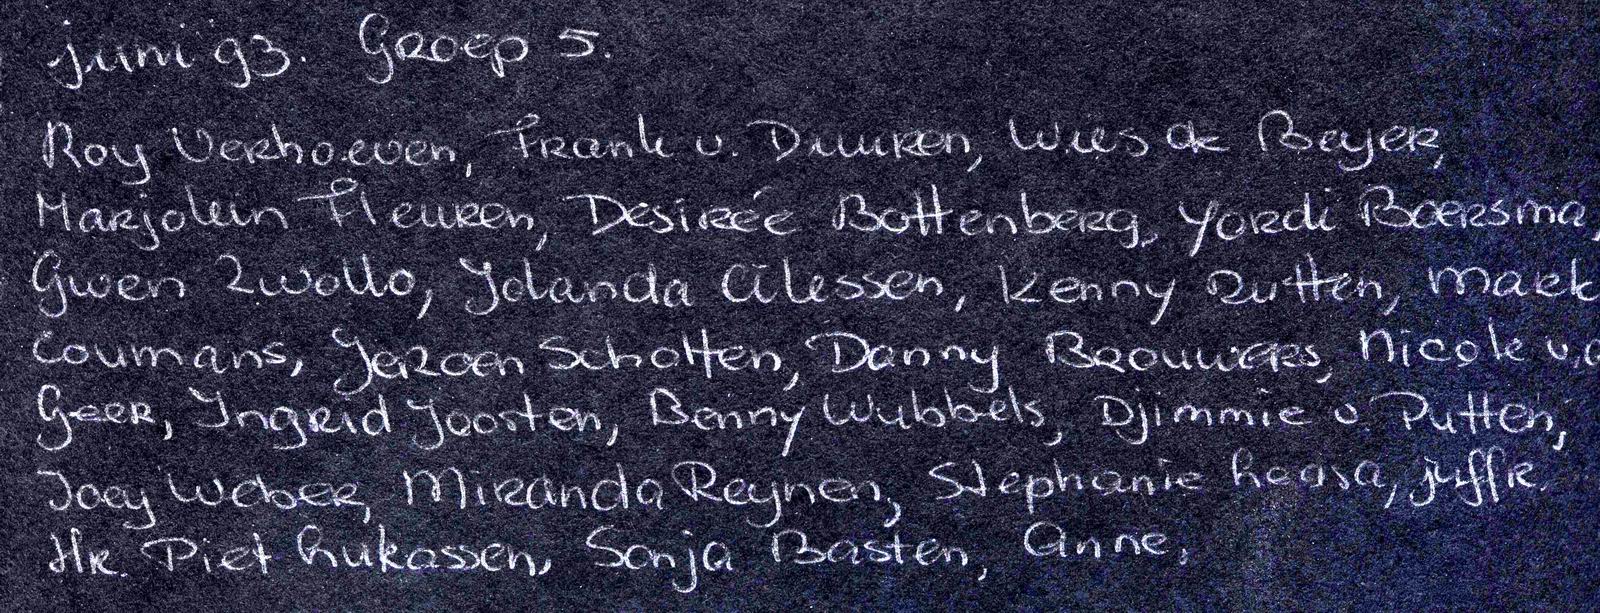 juni 93. Groep 5.
Roy Verhoeven, Frank v. Duuren, Wies de Beyer,
Marjolein Fleuren, Desirée Bottenberg, Yordi Boersma,
Gwen Zwollo, Jolanda Alessen, Kenny Rutten, Mark
Coumans, Jeroen Scholten, Danny Brouwers, Nicole v.d
Geer, Ingrid Joosten, Benny Wubbels, Djimmie v. Putten,
Joey Weber, Miranda Reynen, Stephanie juffr.
Hr. Piet Lukassen, Sonja Basten, Anne,